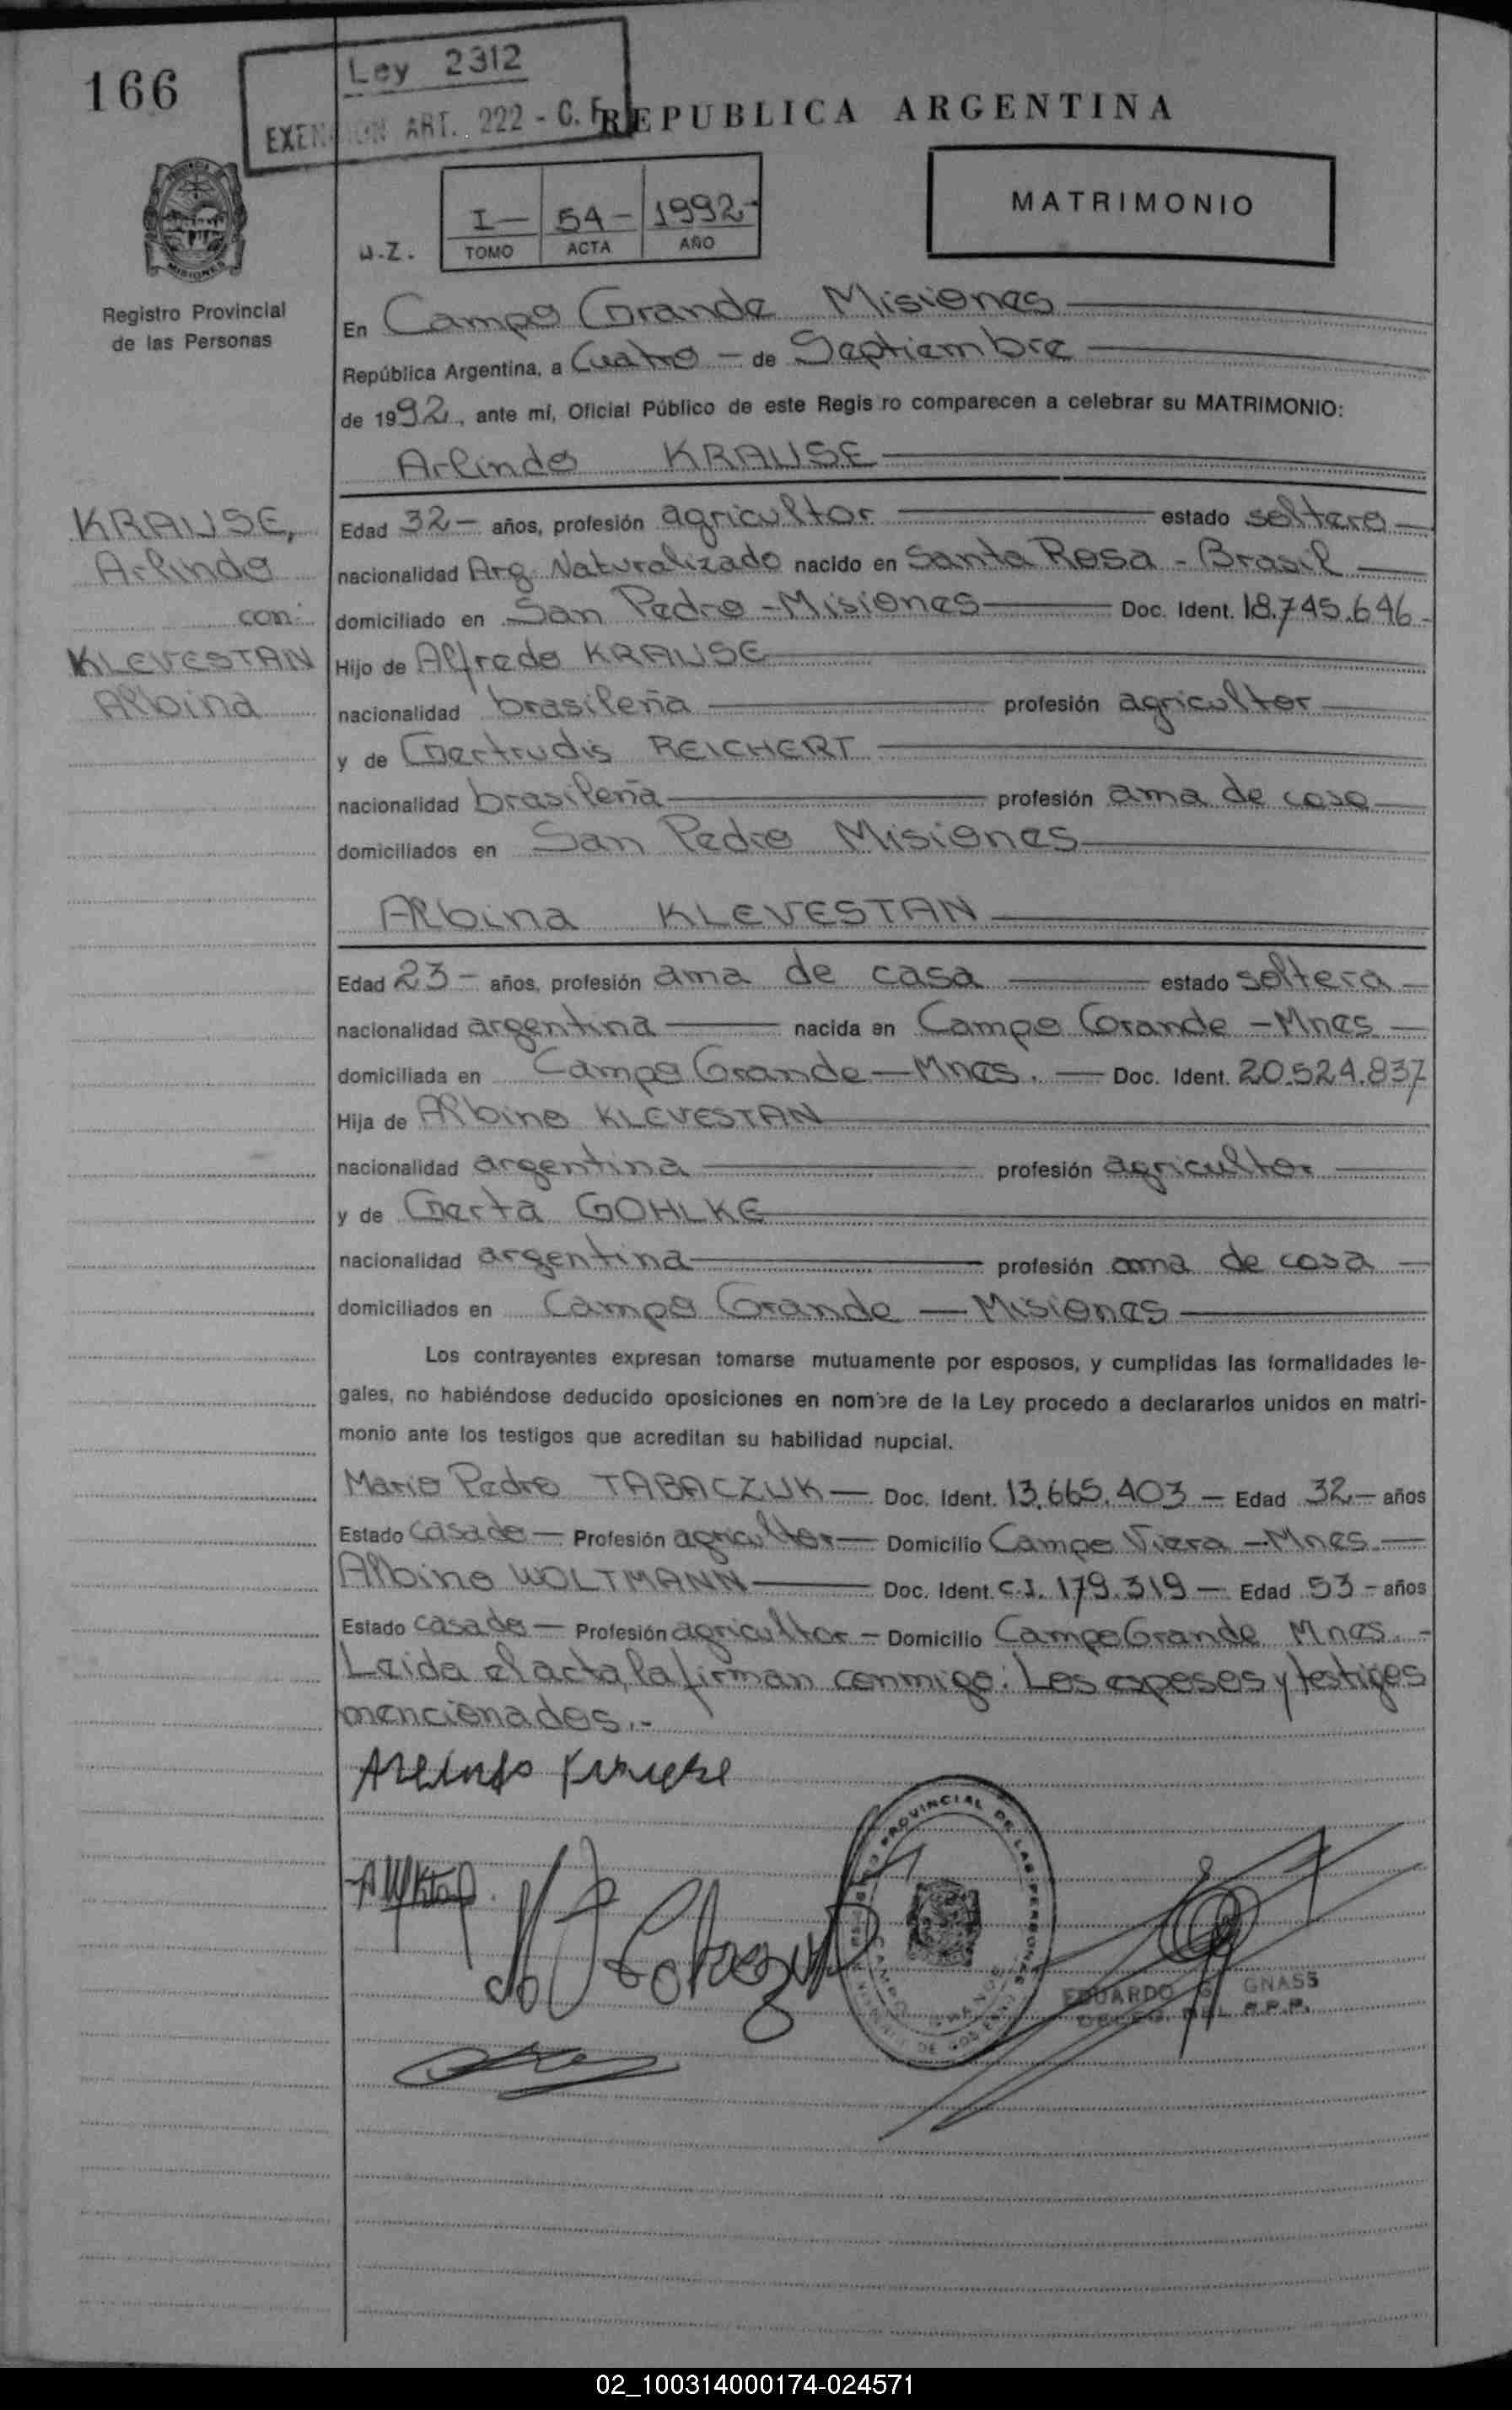 166
Ley 2312
EXENCION ART. 222 - C. F.
REPUBLICA ARGENTINA
PROVINCIA DE
MISIONES
Registro Provincial
de las Personas
U.Z.
I — 54 — 1992-
TOMO ACTA AÑO
MATRIMONIO
En Campo Grande Misiones
República Argentina, a Cuatro — de Septiembre
de 1992, ante mí, Oficial Público de este Regis ro comparecen a celebrar su MATRIMONIO:
Arlindo KRAUSE
KRAUSE,
Arlindo
con:
KLEVESTAN
Albina
Edad 32 — años, profesión agricultor — estado soltero —
nacionalidad Arg. Naturalizado nacido en Santa Rosa - Brasil —
domiciliado en San Pedro - Misiones — Doc. Ident. 18.745.646 -
Hijo de Alfredo KRAUSE
nacionalidad brasileña — profesión agricultor —
y de Gertrudis REICHERT
nacionalidad brasileña — profesión ama de casa —
domiciliados en San Pedro Misiones
Albina KLEVESTAN
Edad 23 — años, profesión ama de casa — estado soltera —
nacionalidad argentina — nacida en Campo Grande - Mnes —
domiciliada en Campo Grande — Mnes. — Doc. Ident. 20.524.837
Hija de Albino KLEVESTAN
nacionalidad argentina — profesión agricultor —
y de Gerta GOHLKE
nacionalidad argentina — profesión ama de casa —
domiciliados en Campo Grande — Misiones
Los contrayentes expresan tomarse mutuamente por esposos, y cumplidas las formalidades le-
gales, no habiéndose deducido oposiciones en nombre de la Ley procedo a declararlos unidos en matri-
monio ante los testigos que acreditan su habilidad nupcial.
Mario Pedro TABACZUK — Doc. Ident. 13.665.403 — Edad 32 — años
Estado casado — Profesión agricultor — Domicilio Campo Viera — Mnes. —
Albino WOLTMANN — Doc. Ident. C.I. 179.319 — Edad 53 - años
Estado casado — Profesión agricultor — Domicilio Campo Grande Mnes. -
Leida el acta, la firman conmigo: Los esposos y testigos
mencionados.-
Arlindo Krause
PROVINCIAL DE LAS PERSONAS
CAMPO GRANDE
EDUARDO G. GNASS
DELEG. DEL R.P.P.
02_100314000174-024571